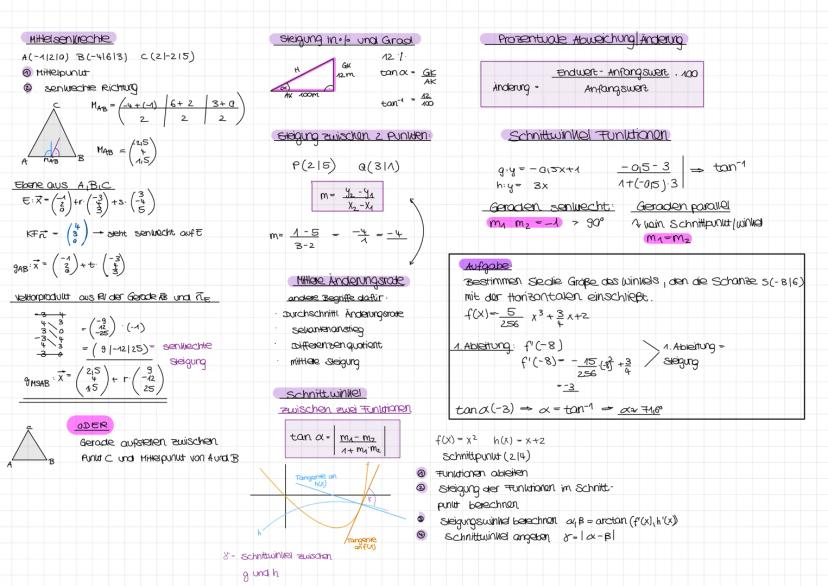 Mittelsenkrechte
A(-1|2|0) B(-4|6|3) C(2|-2|5)
① Mittelpunkt
② senkrechte Richtung
C
A M_AB B
M_AB = ( -4+(-1) / 2 | 6+2 / 2 | 3+0 / 2 )
M_AB = (2,5 4 1,5)
Ebene aus A,B,C
KF n = (4 3 0) → steht senkrecht auf E
g_AB: x = (-1 2 0) + t (-3 4 3)
Vektorprodukt aus RV der Gerade AB und n_E
= (-9 -12 -25) · (-1)
= (9|-12|25) = senkrechte
Steigung
g_MSAB: x = (2,5 4 1,5) + r (9 -12 25)
ODER
C
A B
Gerade aufstellen zwischen
Punkt C und Mittelpunkt von A und B
Steigung in % und Grad
H
GK
12m
α
AK 100m
12 %
tan α = GK / AK
tan⁻¹ = 12 / 100
Steigung zwischen 2 Punkten:
P(2|5) Q(3|1)
m = y₂ - y₁ / x₂ - x₁
m = 1 - 5 / 3-2 = -4 / 1 = -4
Mittlere Änderungsrate
andere Begriffe dafür:
· Durchschnittl Änderungsrate
· Sekantenanstieg
· Differenzenquotient
· mittlere Steigung
Schnittwinkel
zwischen zwei Funktionen
tan α = | m₁ - m₂ / 1 + m₁ m₂ |
Tangente an
h(x)
f
h
γ
Tangente
an f(x)
γ - Schnittwinkel zwischen
g und h
Prozentuale Abweichung/Änderung
Änderung = Endwert - Anfangswert / Anfangswert · 100
Schnittwinkel Funktionen
g: y = -0,5x+1
h: y = 3x
-0,5 - 3 / 1+(-0,5)·3 | ⇒ tan⁻¹
Geraden senkrecht:
m₁ m₂ = -1 > 90°
Geraden parallel
↳ kein Schnittpunkt/winkel
m₁=m₂
Aufgabe
Bestimmen Sie die Größe des Winkels, den die Schanze S(-8|6)
mit der Horizontalen einschließt.
f(x)= 5 / 256 x³ + 3 / 4 x+2
1. Ableitung: f'(-8)
f'(-8) = - 15 / 256 (-8)² + 3 / 4
= -3
1. Ableitung =
Steigung
tan α (-3) ⇒ α = tan⁻¹ ⇒ α≈ 71,6°
f(x) = x² h(x) = x+2
Schnittpunkt (2|4)
① Funktionen ableiten
② Steigung der Funktionen im Schnitt-
punkt berechnen
③ Steigungswinkel berechnen α,β = arctan (f'(x), h'(x))
④ Schnittwinkel angeben γ = |α - β|